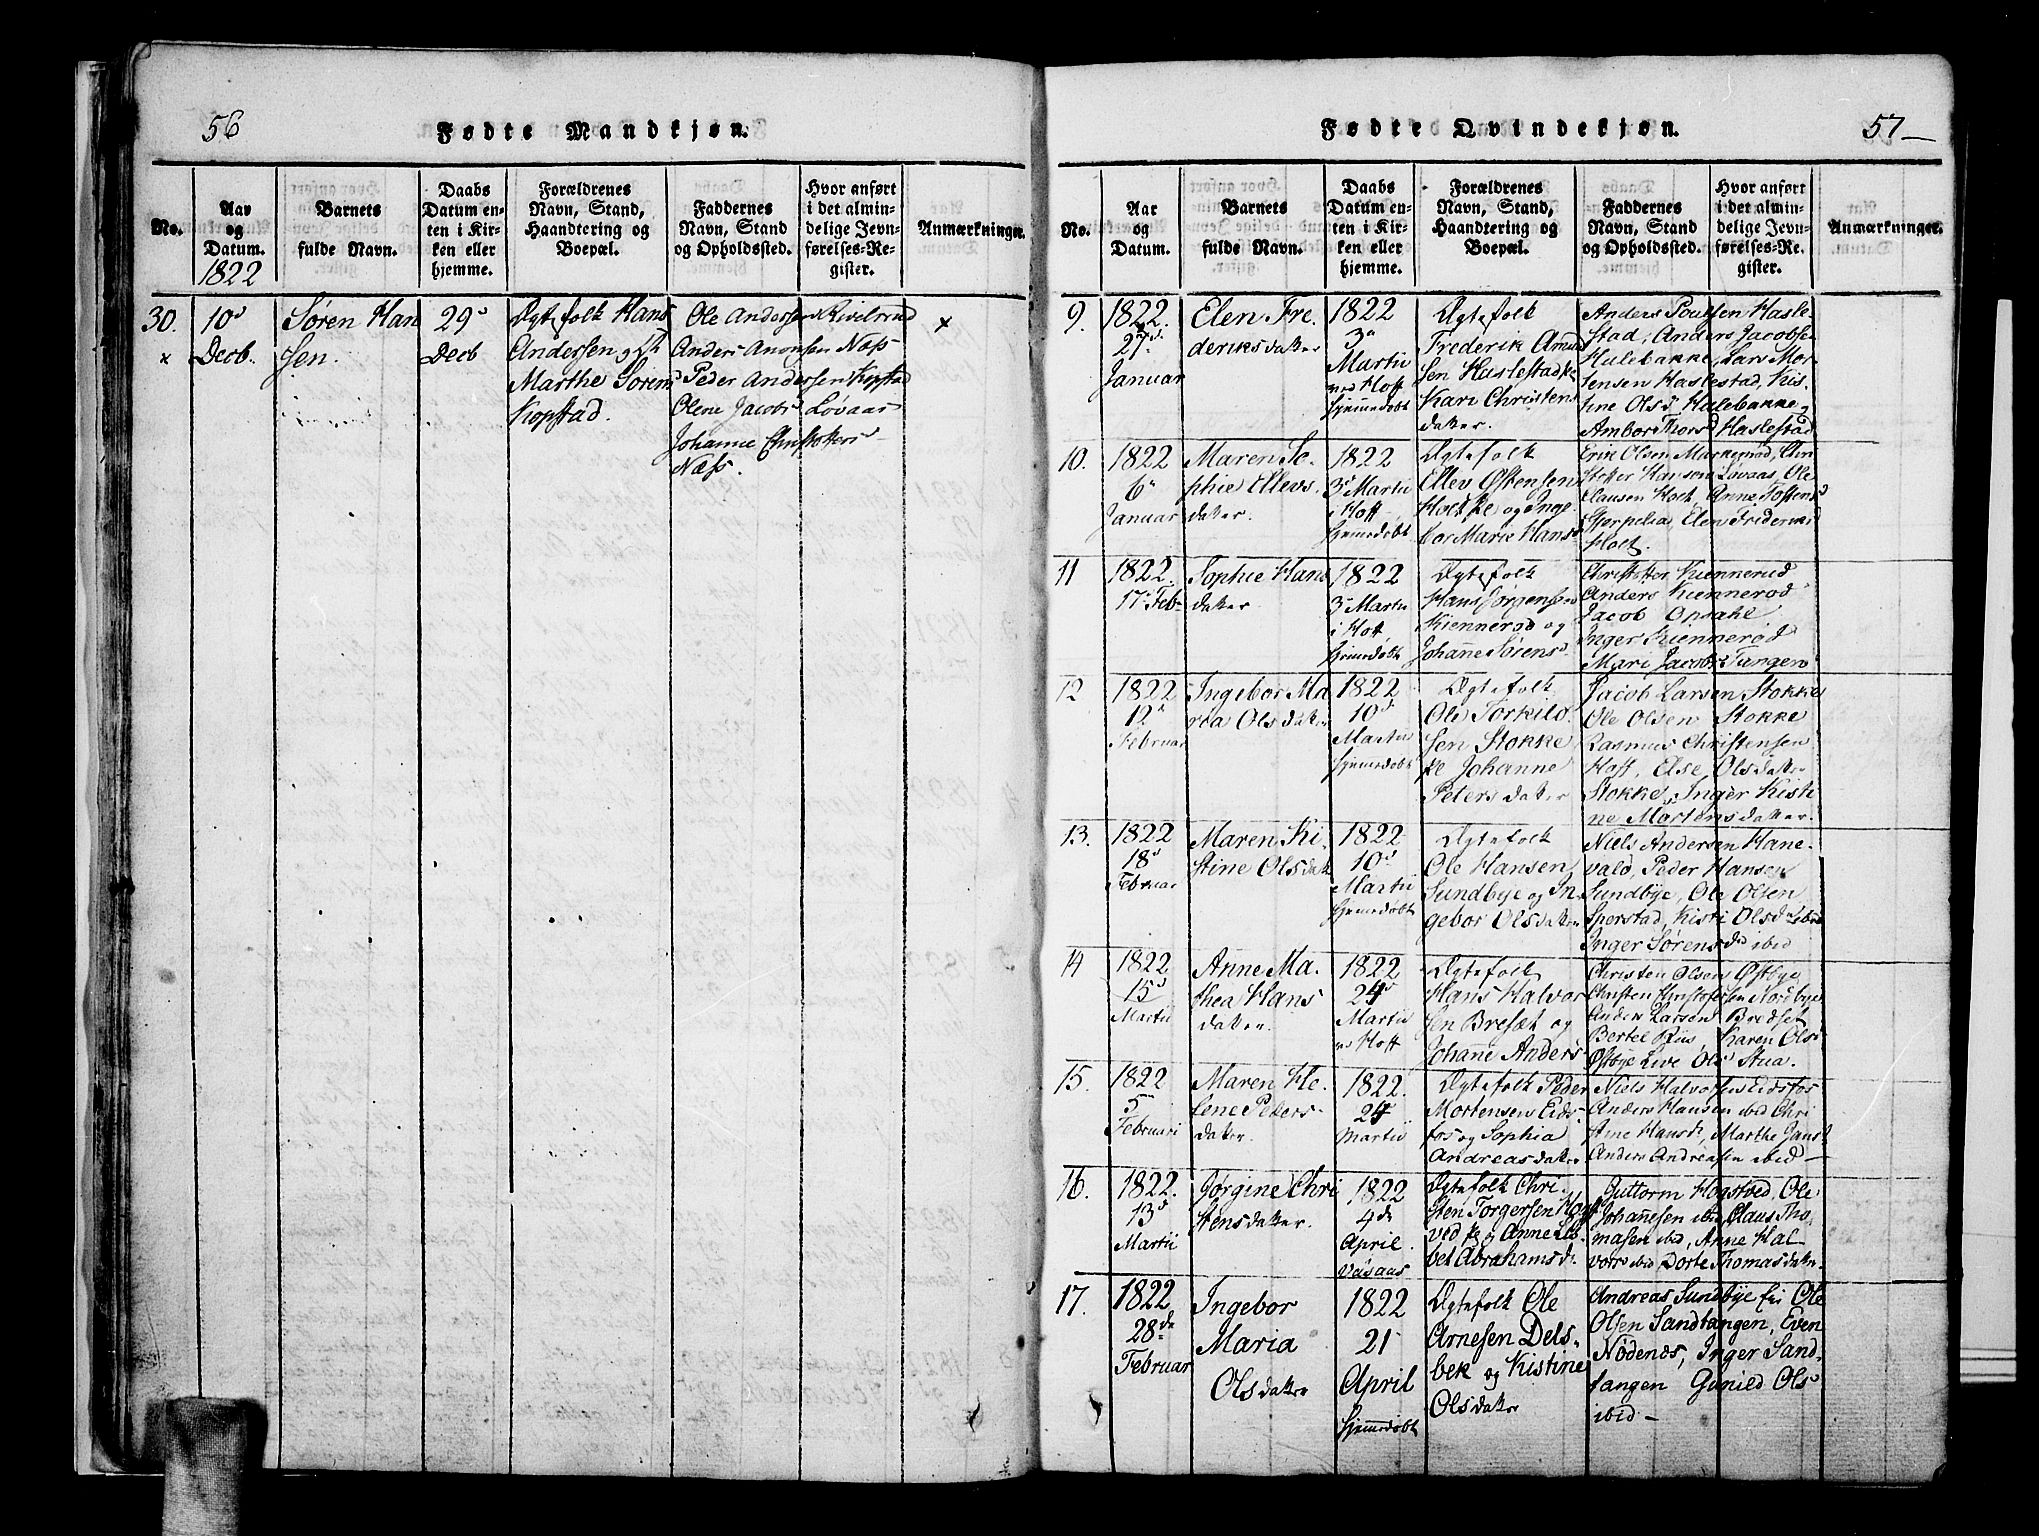 56
Fødte Mandkjøn.
No.
Aar
og
Datum.
1822
Barnets
fulde Navn.
Daabs
Datum en-
ten i Kir-
ken eller
hjemme.
Forældrenes
Navn, Stand,
Haandtering og
Boepæl.
Faddernes
Navn, Stand
og Opholdssted.
Hvor anført
i det almin-
delige Jevn-
førelses-Re-
gister.
Anmærkninger.
30.
10
Decb.
Søren Han
sen.
29
Decb
Ægtefolk Hans
Andersen og
Marthe Sørens
Kopstad.
Ole Anders
Anders Næss
Peder Andersen Kopstad
Olene Jacobs Løvaas
Johanne
Næss.
57
Fødte Qvindekjøn.
No.
Aar
og
Datum.
Barnets
fulde Navn.
Daabs
Datum en-
ten i Kir-
ken eller
hjemme.
Forældrenes
Navn, Stand,
Haandtering og
Boepæl.
Faddernes
Navn, Stand
og Opholdssted.
Hvor anført
i det almin-
delige Jevn-
førelses-Re-
gister.
Anmærkninger.
9.
1822.
27
Januar
Elen Fre
deriksdatter
1822
3
Martii
Hoff
hjemmedøbt
Ægtefolk
Frederik
sen Haslestad
Kari Christens
datter.
Anders Poulsen Hasle
stad, Anders Jacobsen
Halebakke, Lars Mor
tensen Haslestad, Kis
tine Olsd Halebakke
Ambor Thorsd Haslestad
10.
1822
6
Januar
Maren So
phie Ellevs
datter.
1822
3 Martii
i Hoff
hjemmedøbt
Ægtefolk
Ellev Østensen
Holt og Inge
bor Marie Hans
Eric Olsen
Hansen Løvaas, Ole
Clausen Holt Anne
Elen
Holt.
11
1822.
17 Feb
Sophie Hans
datter.
1822
3 Martii
i Hoff
hjemmedøbt
Ægtefolk
Hans Jørgensen
Kiennerød og
Johanne Sørens
Kiennerud
Anders Kiennerød
Jacob Opsahl
Inger Kiennerød
Mari Jacobs Tangen
12
1822
12
Februar
Ingebor Ma
ria Olsdatter
1822
10
Martii
hjemmedøbt
Ægtefolk
Ole Torkild
sen Stokke
Johanne
Petersdatter
Jacob Larsen Stokke
Ole Olsen Stokke
Rasmus Christensen
Hoff, Else Olsdatter
Stokke, Inger Kisti
ne Mortensdatter.
13.
1822
18
Februar
Maren Ki
stine Olsdat
1822
10
Martii
hjemmedøbt
Ægtefolk
Ole Hansen
Sundbye og In
gebor Olsdatter
Niels Andersen Hane
vald, Peder Hansen
Sundbye, Ole Olsen
Sperstad, Kisti Olsd ibid
Inger Sørensd ibid
14
1822
15
Martii
Anne Ma
thea Hans
datter.
1822
24
Martii
Hoff
Ægtefolk
Hans Halvor
sen Bresæt og
Johanne Anders
Christen Olsen Østbye
Christen Christofersen Nordbye
Anders Larsen Bredset
Bertel Riis, Karen Ols
Østbye Live Ols Stua.
15.
1822
5
Februari
Maren He
lene Peters
datter.
1822.
24
Martii
Ægtefolk Peder
Mortensen Eids
fos og Sophia
Andreasdatter
Niels Halvorsen Eidsfos
Anders Hansen ibid Chri
stine Hansd, Marthe Jans
Anders Andreasen ibid
16.
1822.
13
Martii
Jørgine Chri
stensdatter.
1822
4de
April
Vasaas
Ægtefolk Chri
sten Torgersen Hogst
ved og Anne Lis
bet Abrahamsd
Guttorm Hogstved, Ole
Johannesen ibid Claus Tho
masen ibid, Anne Hal
vors ibid Dorte Thomasdatter
17.
1822
28de
Februar
Ingebor
Maria
Olsdatter
1822
21
April
hjemmedøbt
Ægtefolk Ole
Arnesen Dels
bek og Kistine
Olsdatter
Andreas Sundbye Ole
Olsen Sandtangen, Even
Nødenes, Inger Sand
tangen Gunild Ols
ibid